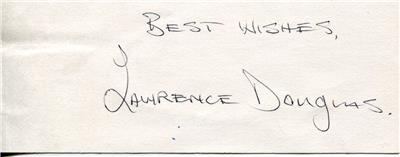 BEST WISHES,
LAWRENCE DOUGLAS.